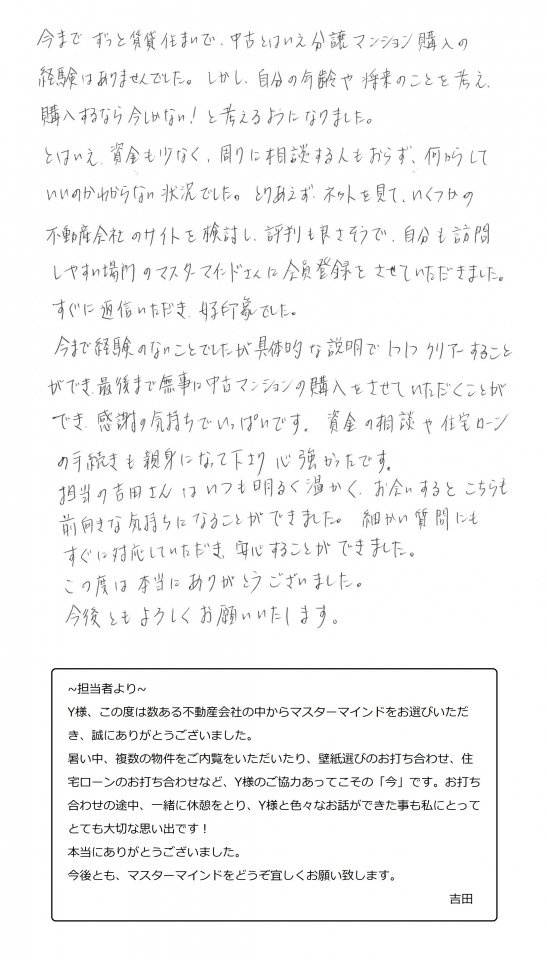 今まで ずっと賃貸住まいで、中古とはいえ分譲マンション購入の
経験はありませんでした。しかし、自分の年齢や将来のことを考え、
購入するなら今しかない！と考えるようになりました。
とはいえ、資金も少なく、周りに相談する人もおらず、何からして
いいのかわからない状況でした。とりあえず、ネットを見て、いくつかの
不動産会社のサイトを検討し、評判も良さそうで、自分も訪問
しやすい場所のマスターマインドさんに会員登録をさせていただきました。
すぐに返信いただき、好印象でした。
今まで経験のないことでしたが具体的な説明で1つ1つクリアーすること
ができ、最後まで無事に中古マンションの購入をさせていただくことが
でき、感謝の気持ちでいっぱいです。資金の相談や住宅ローン
の手続きも親身になって下さり心強かったです。
担当の吉田さんはいつも明るく温かく、お会いするとこちらも
前向きな気持ちになることができました。細かい質問にも
すぐに対応していただき、安心することができました。
この度は本当にありがとうございました。
今後ともよろしくお願いいたします。
~担当者より~
Y様、この度は数ある不動産会社の中からマスターマインドをお選びいただ
き、誠にありがとうございました。
暑い中、複数の物件をご内覧をいただいたり、壁紙選びのお打ち合わせ、住
宅ローンのお打ち合わせなど、Y様のご協力あってこその「今」です。お打ち
合わせの途中、一緒に休憩をとり、Y様と色々なお話ができた事も私にとって
とても大切な思い出です！
本当にありがとうございました。
今後とも、マスターマインドをどうぞ宜しくお願い致します。
吉田